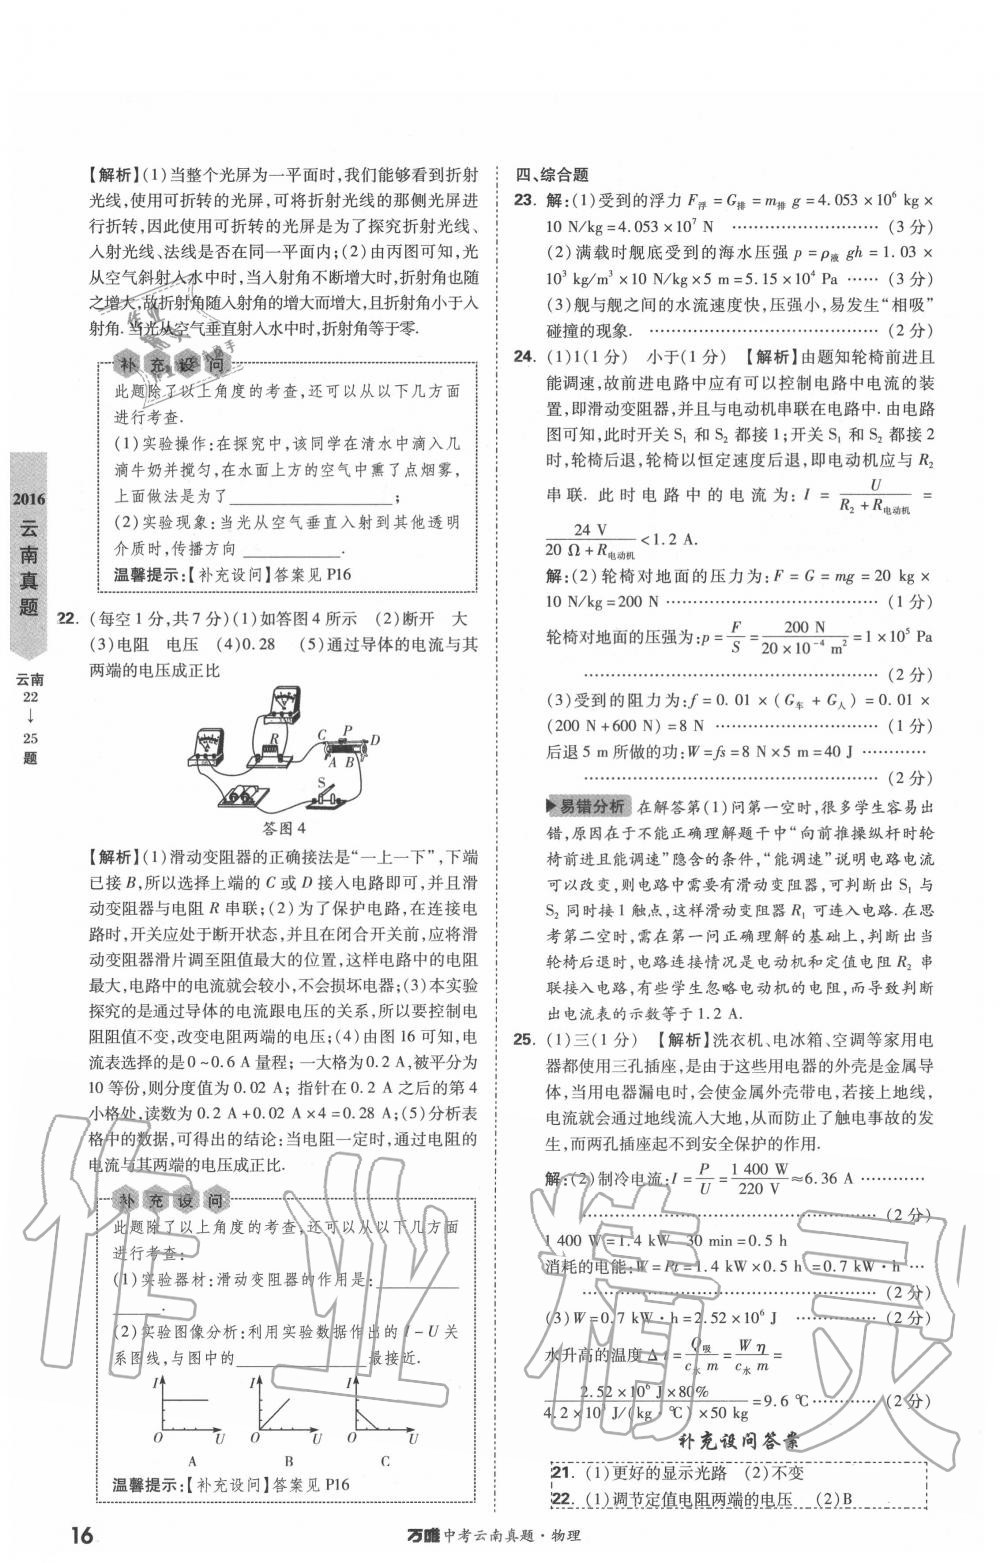 【解析】(1)当整个光屏为一平面时,我们能够看到折射
光线,使用可折转的光屏,可将折射光线的那侧光屏进
行折转,因此使用可折转的光屏是为了探究折射光线、
入射光线、法线是否在同一平面内;(2)由丙图可知,光
从空气斜射入水中时,当入射角不断增大时,折射角也随
之增大,故折射角随入射角的增大而增大,且折射角小于入
射角.当光从空气垂直射入水中时,折射角等于零.
补充设问
此题除了以上角度的考查,还可以从以下几方面
进行考查.
(1)实验操作:在探究中,该同学在清水中滴入几
滴牛奶并搅匀,在水面上方的空气中熏了点烟雾,
上面做法是为了______________;
(2)实验现象:当光从空气垂直入射到其他透明
介质时,传播方向 __________.
温馨提示:【补充设问】答案见 P16
2016
云南真题
云南
22
↓
25
题
22. (每空1分,共7分)(1)如答图4所示 (2)断开 大
(3)电阻 电压 (4)0.28 (5)通过导体的电流与其
两端的电压成正比
R C P D A B S
答图4
【解析】(1)滑动变阻器的正确接法是“一上一下”,下端
已接B,所以选择上端的C或D接入电路即可,并且滑
动变阻器与电阻R串联;(2)为了保护电路,在连接电
路时,开关应处于断开状态,并且在闭合开关前,应将滑
动变阻器滑片调至阻值最大的位置,这样电路中的电阻
最大,电路中的电流就会较小,不会损坏电器;(3)本实验
探究的是通过导体的电流跟电压的关系,所以要控制电
阻阻值不变,改变电阻两端的电压;(4)由图16可知,电
流表选择的是0~0.6 A量程;一大格为0.2 A,被平分为
10等份,则分度值为0.02 A;指针在0.2 A之后的第4
小格处,读数为0.2 A+0.02 A×4=0.28 A;(5)分析表
格中的数据,可得出的结论:当电阻一定时,通过电阻的
电流与其两端的电压成正比.
补充设问
此题除了以上角度的考查,还可以从以下几方面
进行考查:
(1)实验器材:滑动变阻器的作用是:________
____.
(2)实验图像分析:利用实验数据作出的I-U关
系图线,与图中的____________最接近.
I I I
O U O U O U
A B C
温馨提示:【补充设问】答案见 P16
四、综合题
23. 解:(1)受到的浮力 F浮=G排=m排 g=4.053×10⁶ kg×
10 N/kg=4.053×10⁷ N ………………… (3分)
(2)满载时舰底受到的海水压强 p=ρ液 gh=1.03×
10³ kg/m³×10 N/kg×5 m=5.15×10⁴ Pa …… (3分)
(3)舰与舰之间的水流速度快,压强小,易发生“相吸”
碰撞的现象. ………………………… (2分)
24. (1)1(1分) 小于(1分) 【解析】由题知轮椅前进且
能调速,故前进电路中应有可以控制电路中电流的装
置,即滑动变阻器,并且与电动机串联在电路中.由电路
图可知,此时开关 S₁ 和 S₂ 都接1;开关 S₁ 和 S₂ 都接2
时,轮椅后退,轮椅以恒定速度后退,即电动机应与 R₂
串联. 此时电路中的电流为: I = U/(R₂+R电动机) =
24 V/(20 Ω+R电动机)<1.2 A.
解:(2)轮椅对地面的压力为:F=G=mg=20 kg×
10 N/kg=200 N ………………………… (1分)
轮椅对地面的压强为:p=F/S=200 N/(20×10⁻⁴ m²)=1×10⁵ Pa
………………………………… (2分)
(3)受到的阻力为:f=0.01×(G车+G人)=0.01×
(200 N+600 N)=8 N ………………… (1分)
后退5 m所做的功:W=fs=8 N×5 m=40 J …………
………………………………… (2分)
▶易错分析 在解答第(1)问第一空时,很多学生容易出
错,原因在于不能正确理解题干中“向前推操纵杆时轮
椅前进且能调速”隐含的条件,“能调速”说明电路电流
可以改变,则电路中需要有滑动变阻器,可判断出 S₁ 与
S₂ 同时接1触点,这样滑动变阻器 R₁ 可连入电路.在思
考第二空时,需在第一问正确理解的基础上,判断出当
轮椅后退时,电路连接情况是电动机和定值电阻 R₂ 串
联接入电路,有些学生忽略电动机的电阻,而导致判断
出电流表的示数等于1.2 A.
25. (1)三(1分) 【解析】洗衣机、电冰箱、空调等家用电
器都使用三孔插座,是由于这些用电器的外壳是金属导
体,当用电器漏电时,会使金属外壳带电,若接上地线,
电流就会通过地线流入大地,从而防止了触电事故的发
生,而两孔插座起不到安全保护的作用.
解:(2)制冷电流:I=P/U=1 400 W/220 V≈6.36 A …………
………………………………… (2分)
1 400 W=1.4 kW 30 min=0.5 h
消耗的电能:W=Pt=1.4 kW×0.5 h=0.7 kW·h …
………………………………… (2分)
(3)W=0.7 kW·h=2.52×10⁶ J ………… (2分)
水升高的温度Δt=Q吸/(c水 m)=Wη/(c水 m)=
2.52×10⁶ J×80%/(4.2×10³ J/(kg·℃)×50 kg)=9.6 ℃………… (2分)
补充设问答案
21. (1)更好的显示光路 (2)不变
22. (1)调节定值电阻两端的电压 (2)B
16
万唯中考云南真题·物理
作业精灵